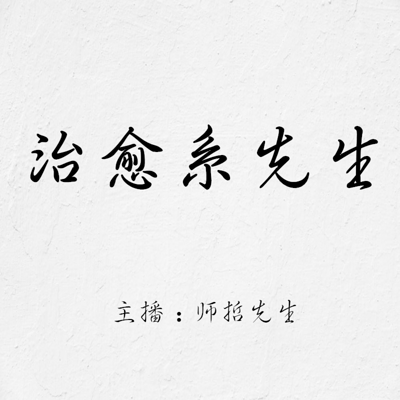 治愈系先生
主播：师哲先生